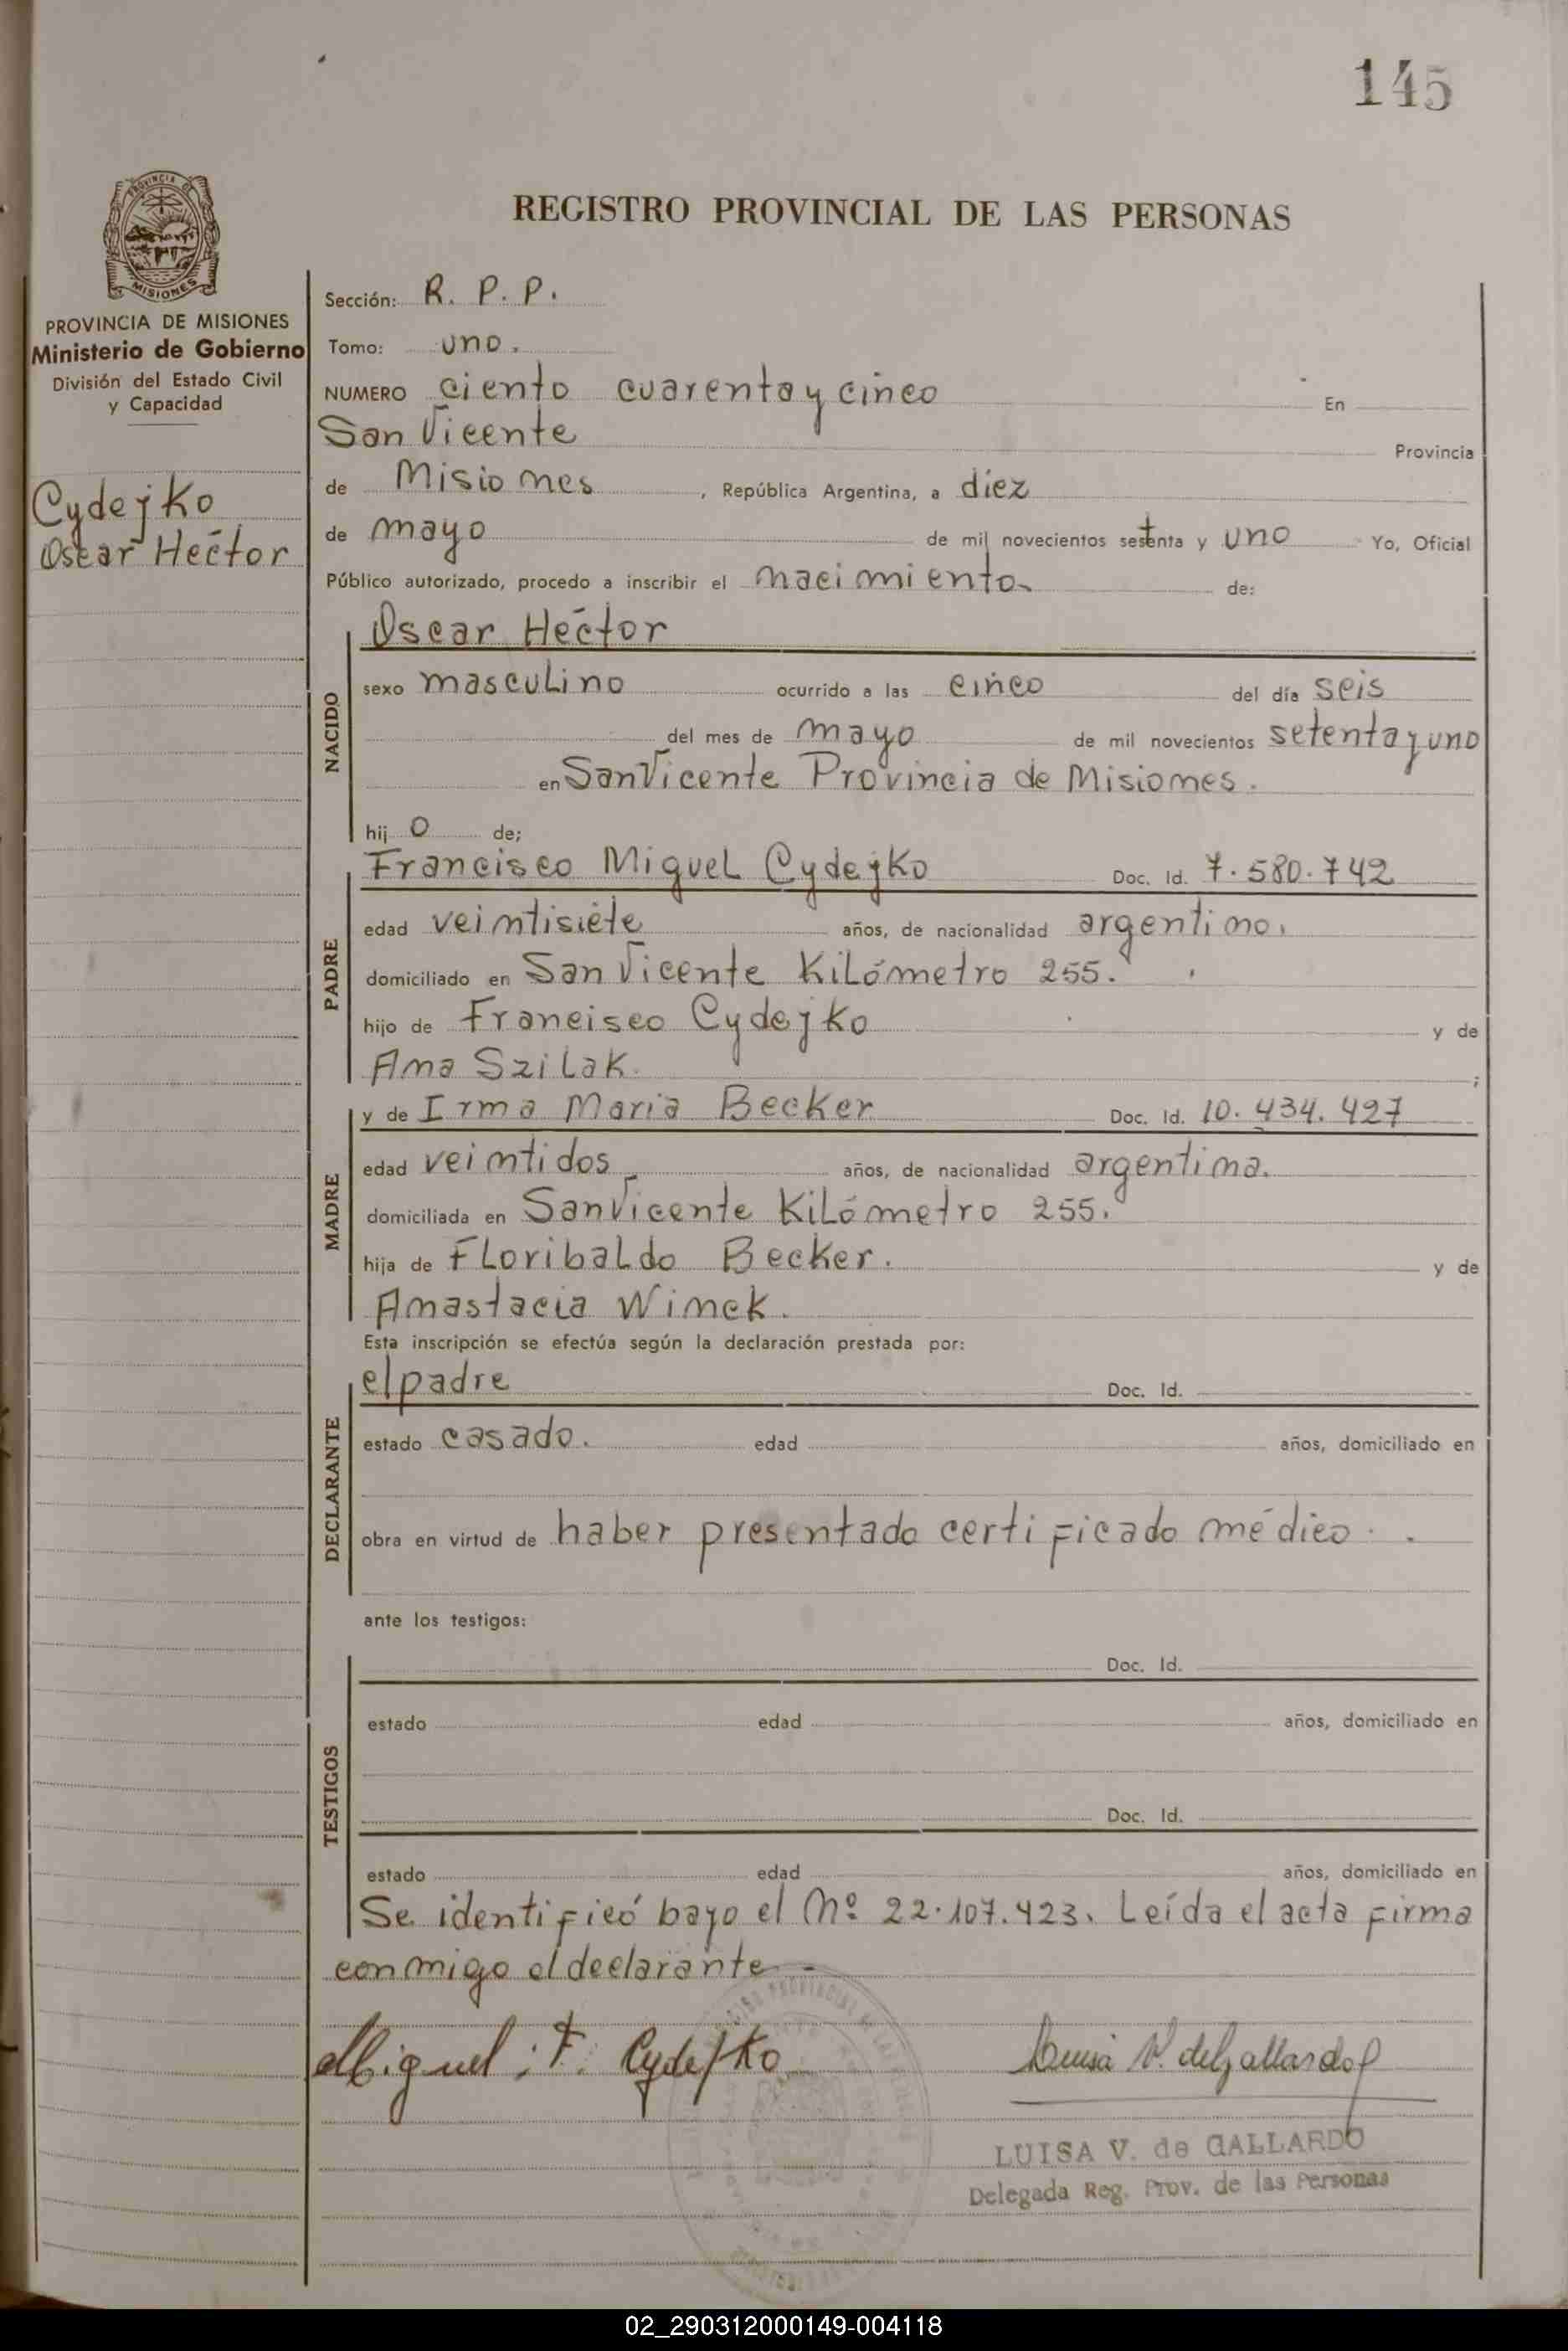 145
REGISTRO PROVINCIAL DE LAS PERSONAS
PROVINCIA DE MISIONES
PROVINCIA DE MISIONES
Ministerio de Gobierno
División del Estado Civil
y Capacidad
Cydejko
Oscar Héctor
Sección: R. P. P.
Tomo: uno.
NUMERO ciento cuarenta y cinco En
San Vicente Provincia
de Misiones, República Argentina, a diez
de mayo de mil novecientos setenta y uno Yo, Oficial
Público autorizado, procedo a inscribir el nacimiento de:
NACIDO
Oscar Héctor
sexo masculino ocurrido a las cinco del día seis
del mes de mayo de mil novecientos setenta y uno
en San Vicente Provincia de Misiones.
hij o de;
PADRE
Francisco Miguel Cydejko Doc. Id. 7.580.742
edad veintisiete años, de nacionalidad argentino.
domiciliado en San Vicente Kilómetro 255.
hijo de Francisco Cydejko y de
Ana Szilak. ;
MADRE
y de Irma Maria Becker Doc. Id. 10.434.427
edad veintidos años, de nacionalidad argentina.
domiciliada en San Vicente Kilómetro 255.
hija de Floribaldo Becker. y de
Anastacia Winek.
Esta inscripción se efectúa según la declaración prestada por:
DECLARANTE
el padre Doc. Id.
estado casado. edad años, domiciliado en
obra en virtud de haber presentado certificado médico.
ante los testigos:
TESTIGOS
Doc. Id.
estado edad años, domiciliado en
Doc. Id.
estado edad años, domiciliado en
Se identificó bajo el Nº 22.107.423. Leída el acta firma
conmigo el declarante
Miguel F. Cydejko Luisa V. de Gallardo
LUISA V. de GALLARDO
Delegada Reg. Prov. de las Personas
02_290312000149-004118